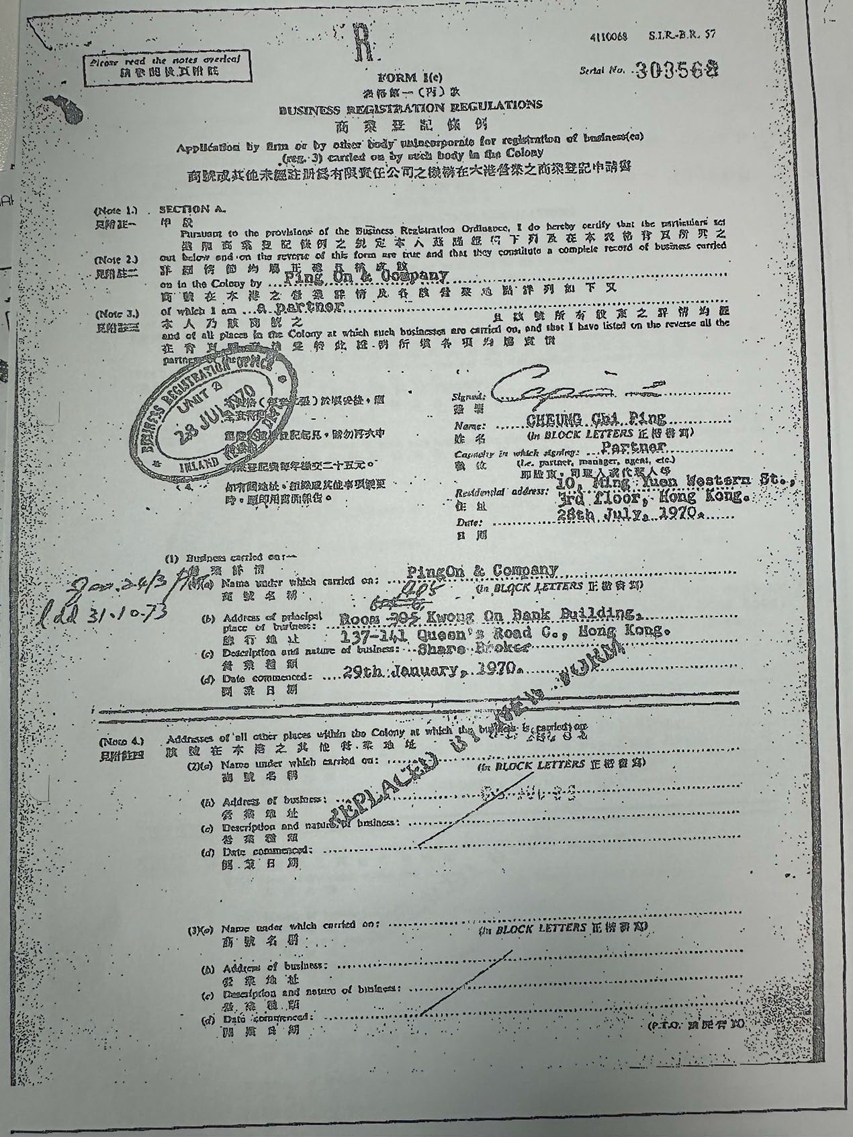 R.
4110068 S.I.R.-B.R. 57
Please read the notes overleaf
請參閱後頁附註
Serial No. 303568
FORM 1(c)
表格第一(丙)款
BUSINESS REGISTRATION REGULATIONS
商業登記條例
Application by firm or by other body unincorporate for registration of business(es)
(reg. 3) carried on by such body in the Colony
商號或其他未經註册為有限責任公司之機構在本港營業之商業登記申請書
(Note 1.) SECTION A.
見附註一 甲段
Pursuant to the provisions of the Business Registration Ordinance, I do hereby certify that the particulars set
(Note 2.) out below and on the reverse of this form are true and that they constitute a complete record of business carried
見附註二
on in the Colony by Ping On & Company
(Note 3.) of which I am a partner
見附註三 本人乃該商號之
and of all places in the Colony at which such businesses are carried on, and that I have listed on the reverse all the
BUSINESS REGISTRATION OFFICE
UNIT 2
28 JUL 1970
INLAND
Signed:
簽署
Name: CHEUNG Chi Ping
姓名 (In BLOCK LETTERS 正楷書寫)
Capacity in which signing: Partner
職位 (i.e. partner, manager, agent, etc.)
Residential address: 10, Ming Yuen Western St.,
住址 3rd floor, Hong Kong.
Date: 28th July, 1970.
日期
(1) Business carried on:—
營業詳情
(a) Name under which carried on: PingOn & Company
商號名稱 (In BLOCK LETTERS 正楷書寫)
31.10.73
405
(b) Address of principal place of business: Room 305 Kwong On Bank Building,
137-141 Queen's Road C., Hong Kong.
(c) Description and nature of business: Share Broker
營業種類
(d) Date commenced: 29th January, 1970.
開業日期
REPLACED BY NEW FORM
(Note 4.) Addresses of all other places within the Colony at which the business is carried on
見附註四 該號在本港之其他營業地址
(2)(a) Name under which carried on:
商號名稱 (In BLOCK LETTERS 正楷書寫)
(b) Address of business:
營業地址
(c) Description and nature of business:
營業種類
(d) Date commenced:
開業日期
(3)(a) Name under which carried on:
商號名稱 (In BLOCK LETTERS 正楷書寫)
(b) Address of business:
營業地址
(c) Description and nature of business:
營業種類
(d) Date commenced:
開業日期
(P.T.O.